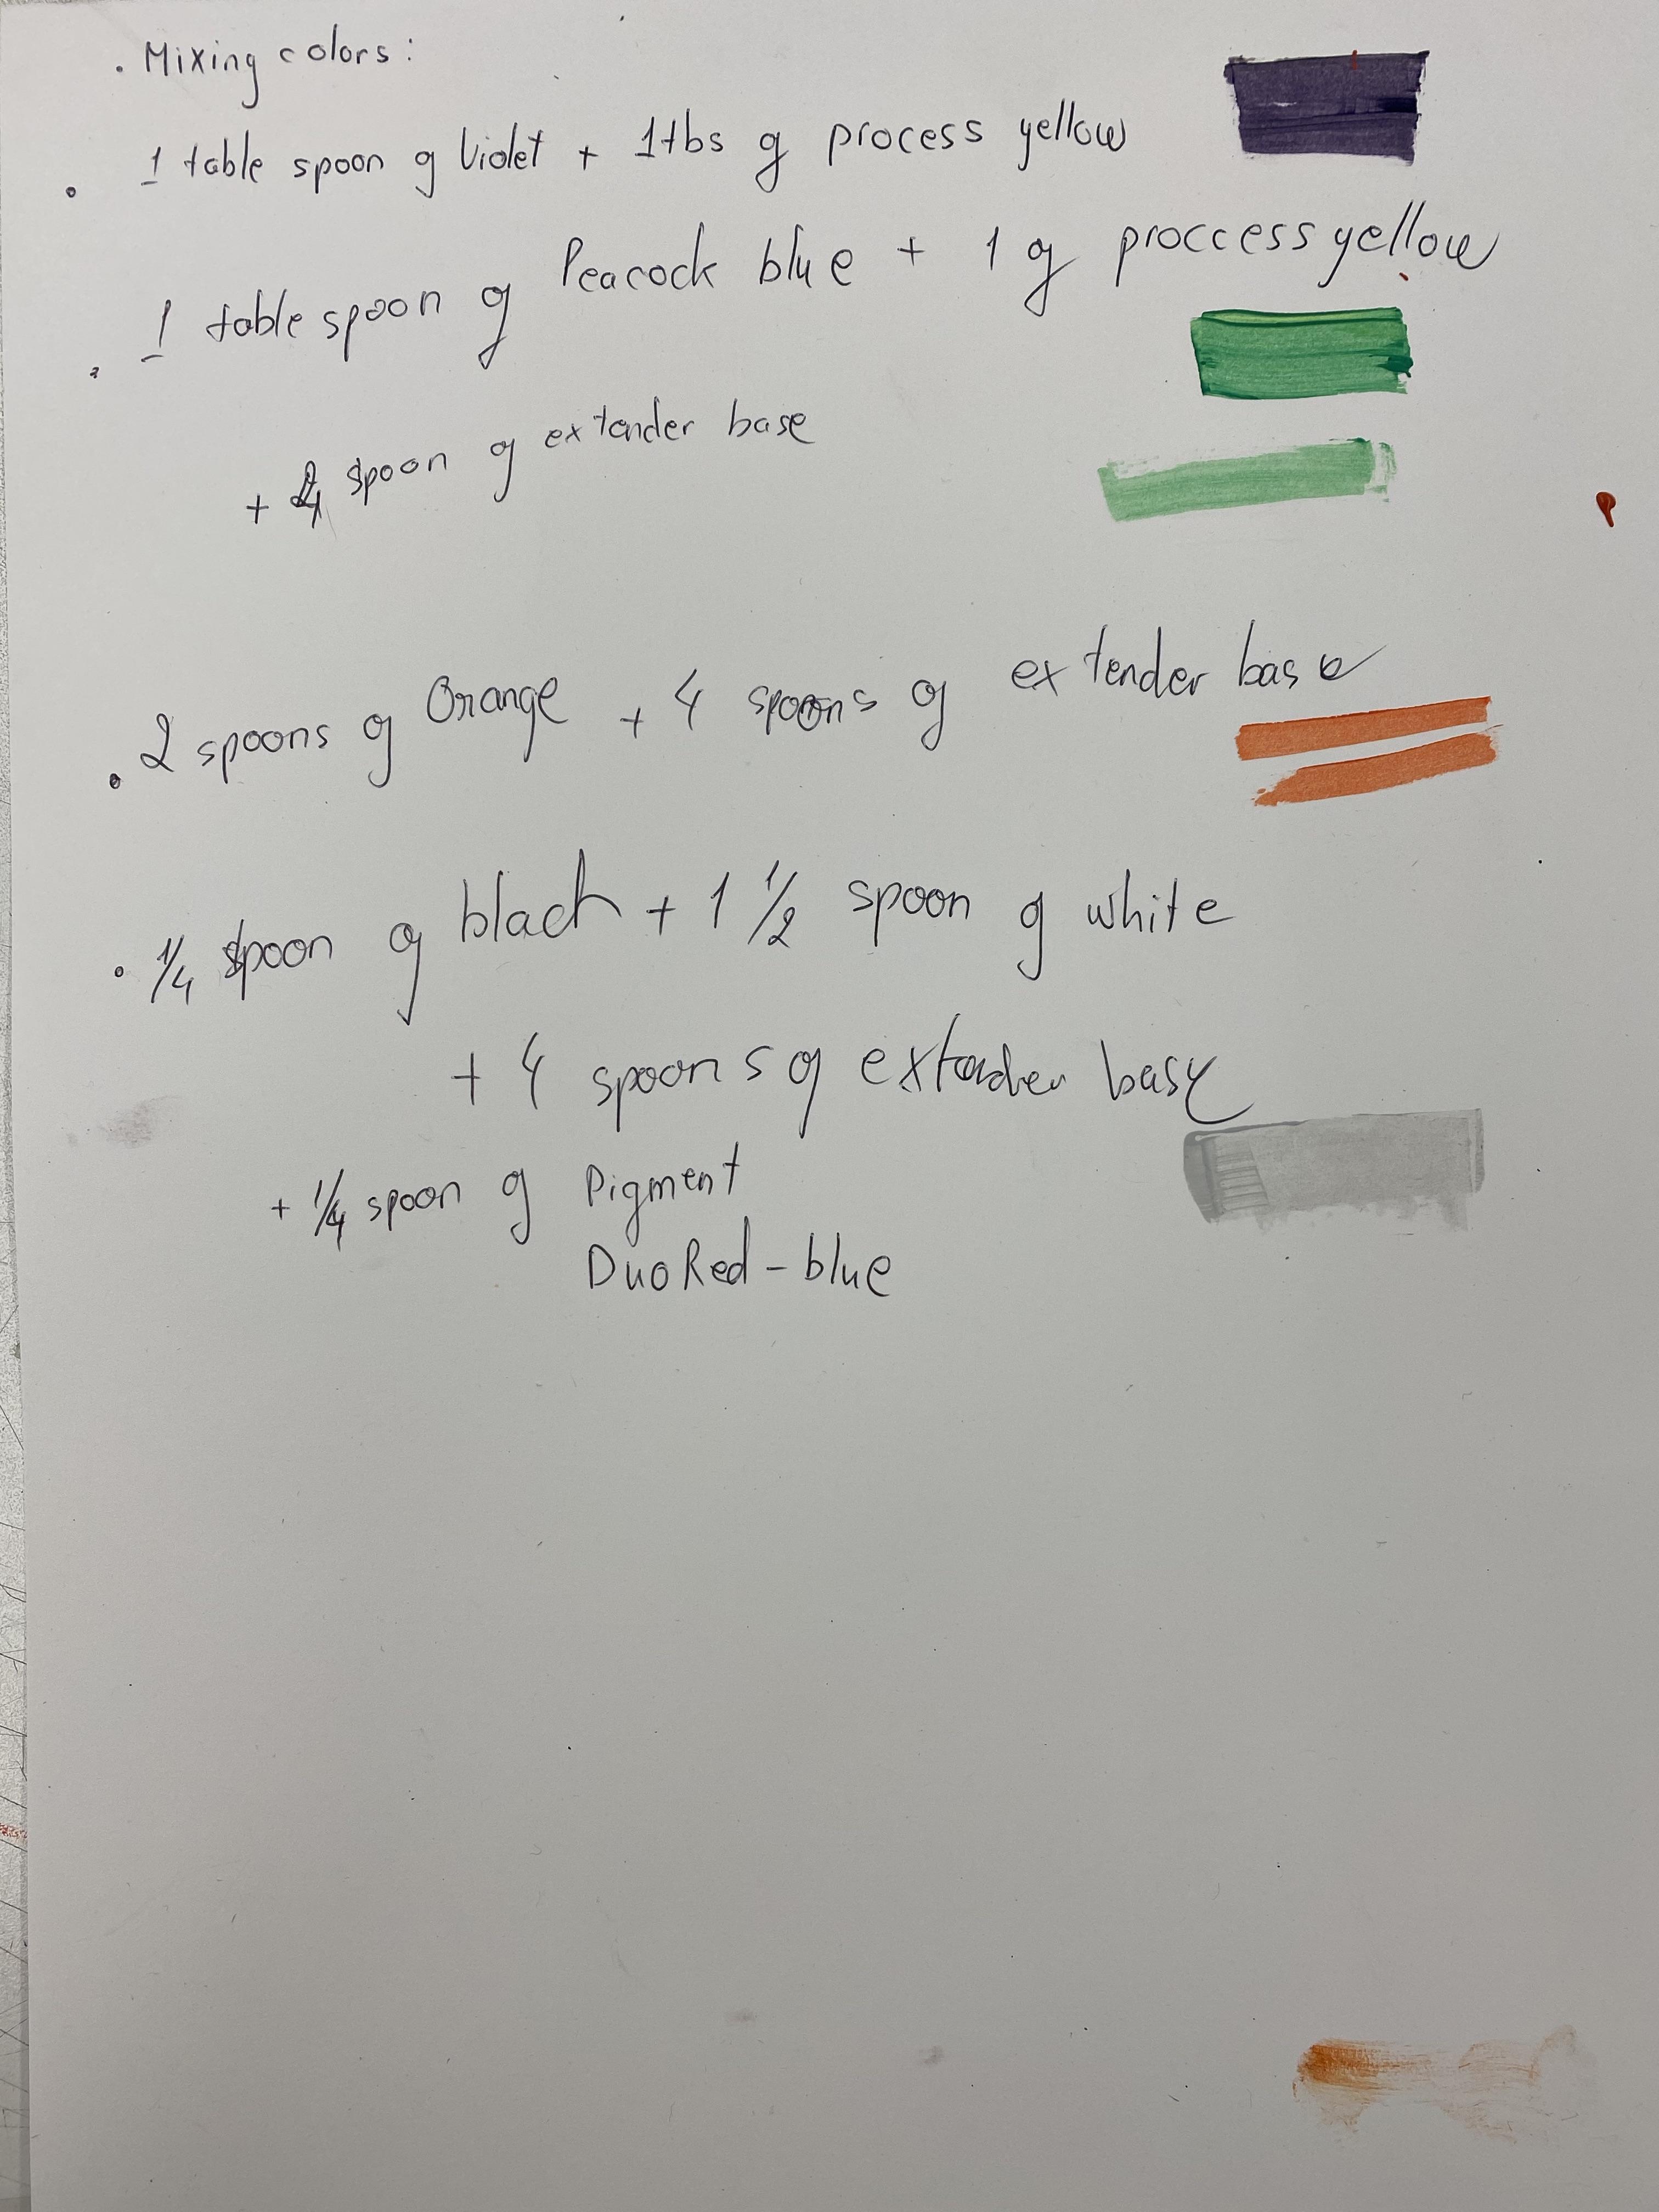 . Mixing colors:
. 1 table spoon of Violet + 1tbs of process yellow
. 1 table spoon of Peacock blue + 1 of proccess yellow
+ spoon of extender base
. 2 spoons of Orange + 4 spoons of extender base
. 1/4 spoon of black + 1 1/2 spoon of white
+ 4 spoons of extender base
+ 1/4 spoon of Pigment
Duo Red - blue